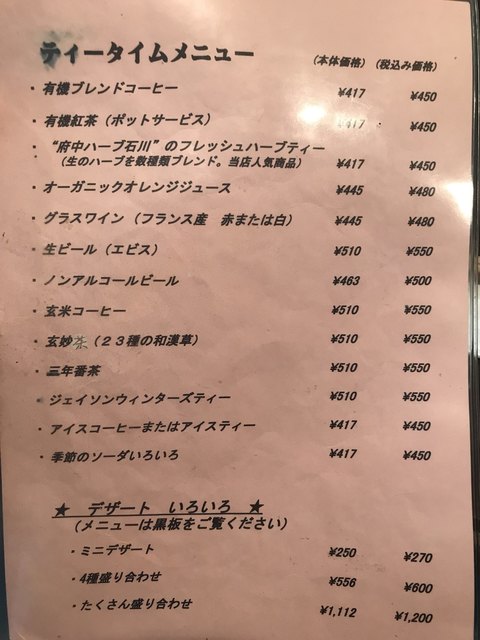 ティータイムメニュー (本体価格) (税込み価格)
・有機ブレンドコーヒー ¥417 ¥450
・有機紅茶（ポットサービス） ¥417 ¥450
・“府中ハーブ石川”のフレッシュハーブティー
（生のハーブを数種類ブレンド。当店人気商品） ¥417 ¥450
・オーガニックオレンジジュース ¥445 ¥480
・グラスワイン（フランス産　赤または白） ¥445 ¥480
・生ビール（エビス） ¥510 ¥550
・ノンアルコールビール ¥463 ¥500
・玄米コーヒー ¥510 ¥550
・玄妙茶（２３種の和漢草） ¥510 ¥550
・三年番茶 ¥510 ¥550
・ジェイソンウィンターズティー ¥510 ¥550
・アイスコーヒーまたはアイスティー ¥417 ¥450
・季節のソーダいろいろ ¥417 ¥450
★　デザート　いろいろ　★
（メニューは黒板をご覧ください）
・ミニデザート ¥250 ¥270
・4種盛り合わせ ¥556 ¥600
・たくさん盛り合わせ ¥1,112 ¥1,200